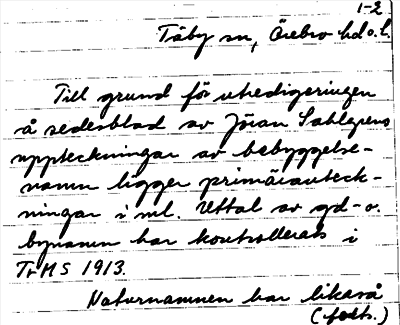 1-2
Täby sn, Örebro hd o. l.
Till grund för utredigeringen
å sedesblad av Jöran Sahlgrens
uppteckningar av bebyggelse-
namn ligger primäranteck-
ningar i ml. Uttal av gd- o.
bynamn har kontrollerats i
TrMS 1913.
Naturnamnen har likaså
(forts.)